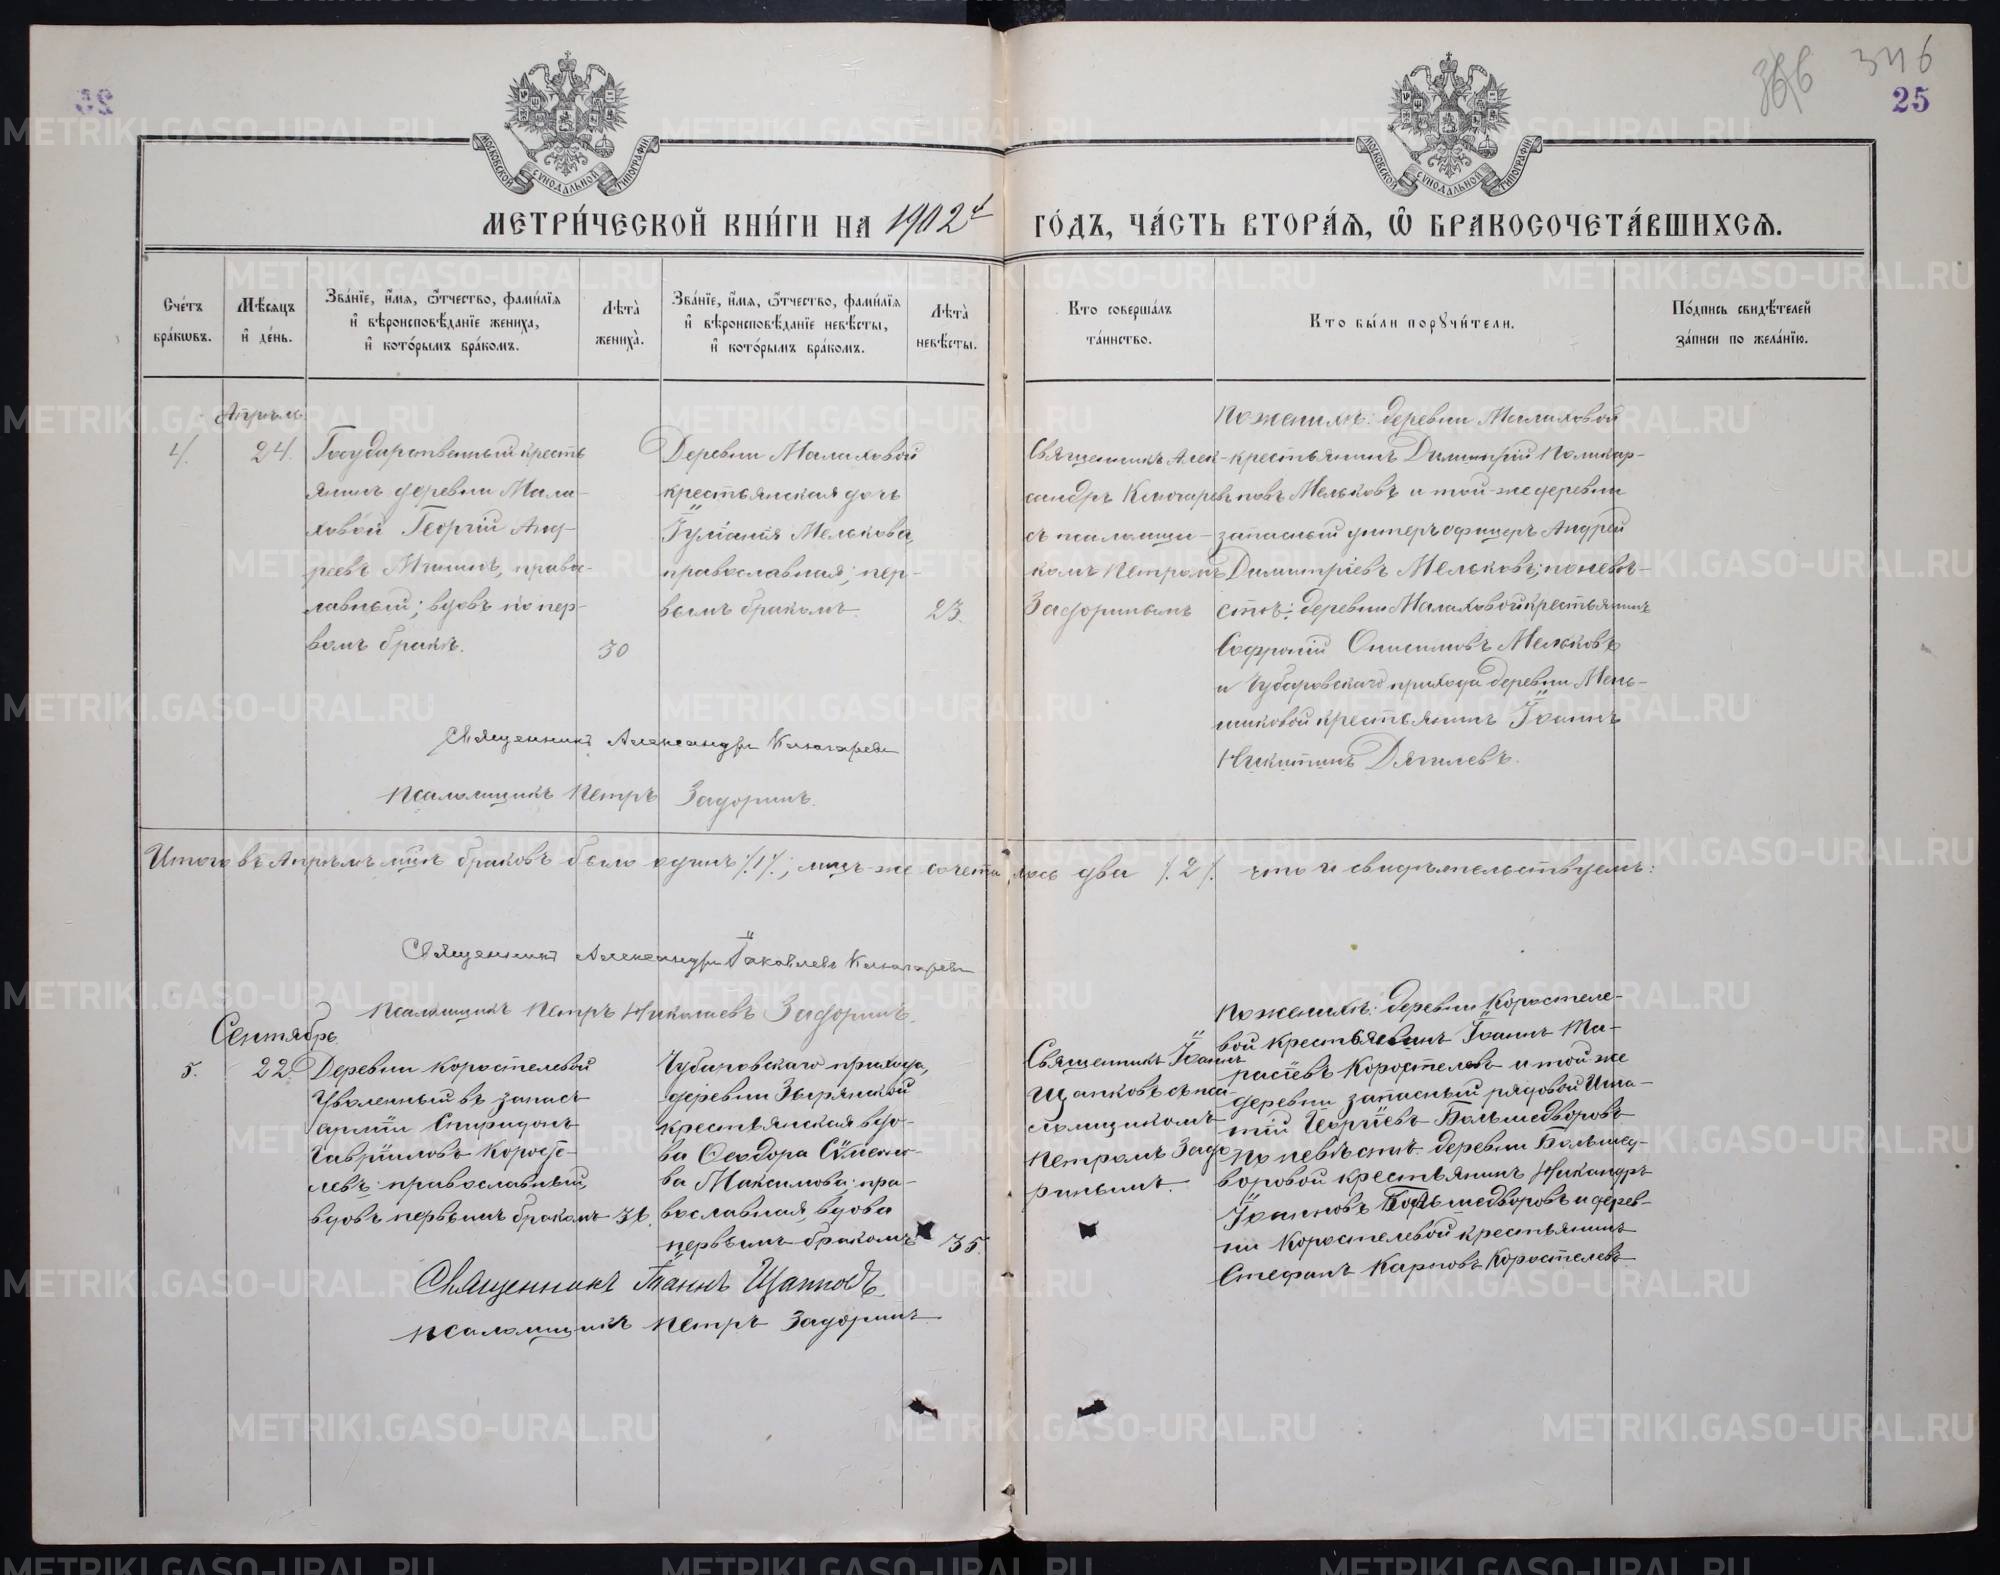 346
25
МОСКОВСКОЙ СѴНОДАЛЬНОЙ ТИПОГРАФІИ
МОСКОВСКОЙ СѴНОДАЛЬНОЙ ТИПОГРАФІИ
МЕТРИ́ЧЕСКОЙ КНИ́ГИ НА 1902й ГО́ДЪ, ЧА́СТЬ ВТОРА́Я, Ѿ БРАКОСОЧЕТА́ВШИХСЯ.
Сче́тъ
бра́кѡвъ.
Мѣсяцъ
и де́нь.
Зва́нїе, и́мя, ѻ́тчество, фами́лїя
и вѣроисповѣ́данїе жениха̀,
и кото́рымъ бра́комъ.
Лѣта̀
жениха̀.
Зва́нїе, и́мя, ѻ́тчество, фами́лїя
и вѣроисповѣ́данїе невѣ́сты,
и кото́рымъ бра́комъ.
Лѣта̀
невѣ́сты.
Кто соверша́лъ
та́инство.
Кто бы́ли порꙋчи́тели.
По́дпись свидѣ́телей
за́писи по жела́нїю.
Апрѣль
4.
24.
Государственный кресть
янинъ деревни Мала-
ховой Георгій Анд-
реевъ Мишинъ, правос-
лавный; вдовъ по пер-
вомъ бракѣ.
30
Деревни Малаховой
крестьянская дочь
Іуліанія Мелькова,
православная; пер-
вымъ бракомъ.
23.
Священникъ Алек-
сандръ Ключаревъ
съ псаломщи-
комъ Петромъ
Задоринымъ
По женихѣ: деревни Малаховой
крестьянинъ Димитрій Поликар-
повъ Мельковъ и той-же деревни
запасный унтеръ офицеръ Андрей
Димитріевъ Мельковъ; по невѣ-
стѣ: деревни Малаховой крестьянинъ
Софроній Онисимовъ Мельковъ
и Чубаровскаго прихода деревни Мень-
шиковой крестьянинъ Іоаннъ
Никитинъ Дягилевъ.
Священникъ Александръ Ключаревъ
Псаломщикъ Петръ Задоринъ.
Итого въ Апрѣлѣ мцѣ браковъ было одинъ /.1/.; лицъ-же сочета лось два /.2/. что и свидѣтельствуемъ:
Священникъ Александръ Іаковлевъ Ключаревъ
Псаломщикъ Петръ Николаевъ Задоринъ.
Сентябрь
5.
22.
Деревни Коростелевой
уволенный въ запасъ
арміи Спиридонъ
Гавріиловъ Коросте-
левъ: православный,
вдовъ первымъ бракомъ
Чубаровскаго прихода,
деревни Зырянской
крестьянская вдо-
ва Ѳеодора Сѵмено-
ва Максимова; пра-
вославная, вдова
первымъ бракомъ
35.
Священникъ Іоаннъ
Щапковъ съ пса
ломщикомъ
Петромъ Задо
ринымъ.
По женихѣ: деревни Коростеле-
вой крестьянинъ Іоаннъ Та-
расіевъ Коростелевъ и той же
деревни запасный рядовой Игна-
тій Георгіевъ Большедворовъ
По невѣстѣ: деревни Большед-
воровой крестьянинъ Никандръ
Іоанновъ Большедворовъ и дерев-
ни Коростелевой крестьянинъ
Стефанъ Карповъ Коростелевъ
Священникъ Іоаннъ Щапковъ
Псаломщикъ Петръ Задоринъ
METRIKI.GASO-URAL.RU